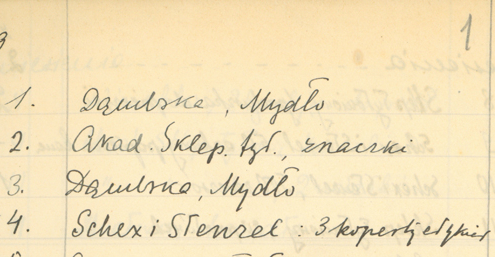 1
1. Dąmbska, Mydło
2. Akad. Sklep. tyt., znaczki
3. Dąmbska, Mydło
4. Schex i Stenzel : 3 koperty i